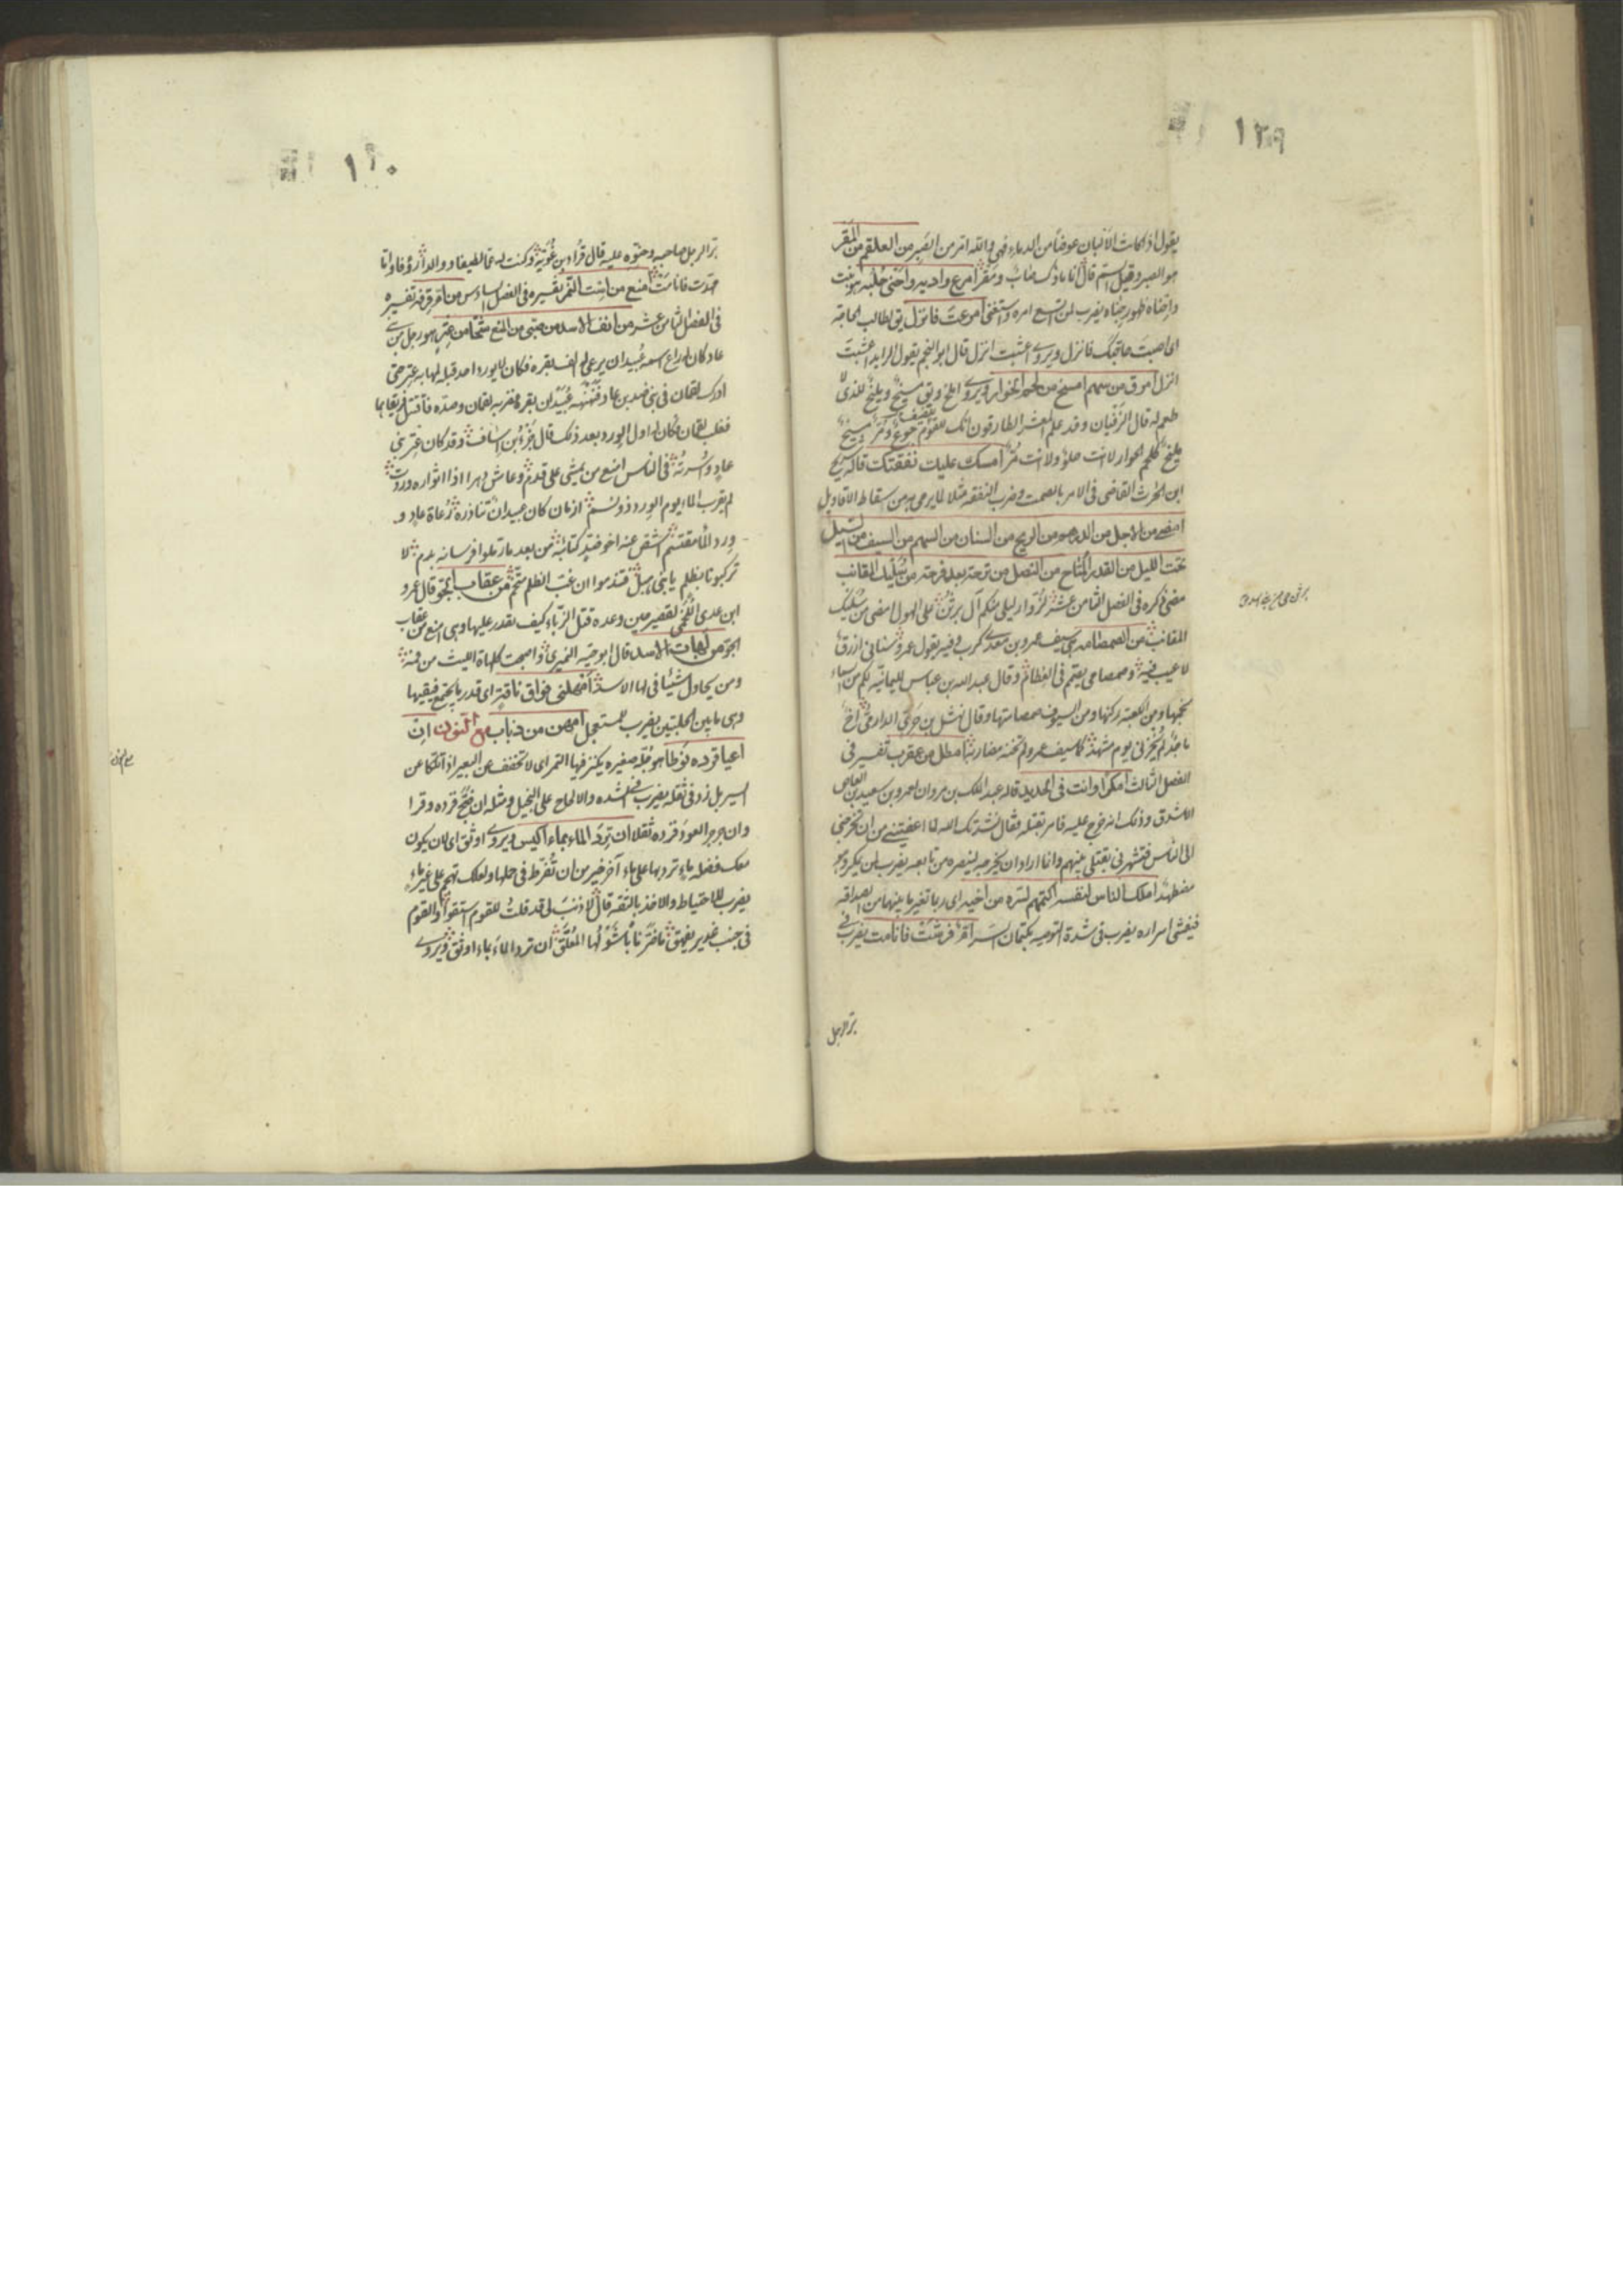 ١٢٩
يقول اذا كانت الألبان عوضاً من الدماء فهي والله امر من الصبر من العلقم من المقر
هو الصبر وقيل السم قال
امرع واديه واجنى حلبه
يضرب لمن اتسع امره واستغنى امرعت فانزل يق لطالب الحاجة
اى اصبت حاجتك فانزل ويروى اعشبت انزل قال ابو النجم يقول الرايد اعشبت
انزل امرق من سهم امسخ من لحم الحوار ويروى املخ ويق مسيخ ومليخ للذى لا
طعم له قال الزفيان وقد علم المعشر الطارقون انك للضيف جوع وقر مسيخ
مليخ كلحم الحوار لا انت حلو ولا انت مر امسك عليك نفقتك قاله شريح
ابن الحرث القاضى فى الامر بالصمت وضرب النفقه مثلا لما يرمى به من سقاط الاقاويل
امضى من الاجل من الدرهم من الريح من السنان من السهم من السيف من السيل
تحت الليل من القدر المتاح من النصل من ترحة بعد فرحة من سليك المقانب
مضى ذكره فى الفصل الثامن عشر لزوار ليلى منكم آل برثن على الهول امضى من سليك
المقانب من الصمصامه هى سيف عمرو بن معدى كرب وفيه يقول عمرو سنانى ازرق
لا عيب فيه وصمصامى يصمم فى العظام وقال عبد الله بن عباس لليمانيه لكم من السماء
نجمها ومن الكعبة ركنها ومن السيوف صمصامتها وقال نهشل بن حرى الدارمى اخ
ماجد لم يخزنى يوم مشهد كما سيف عمرو لم تخنه مضاربه امطل من عقرب تفسيره فى
الفصل الثالث امكرا وانت فى الحديد قاله عبد الملك بن مروان لعمرو بن سعيد بن العاص
الاشدق وذلك انه خرج عليه فامر بقتله فقال نشدتك الله لما اعفيتنى من ان تخرجنى
الى الناس فتشهرنى بقتلى بينهم وانما اراد ان يخرجه لينصره من تابعه يضرب لمن يمكر وهو
مضطهد املك الناس لنفسه اكتمهم لسره من اخيه اى ربما تغير ما بينهما من الصداقه
فيفشى اسراره يضرب فى شدة التوصيه بكتمان السر امر فرشت فانامت يضرب فى
بر الرجل
١٣٠
بر الرجل صاحبه وحنوه عليه قال قراد بن غوية وكنت له عما لطيفا ووالدا رؤفا واما
مهدت فانامت امنع من است النمر تفسيره فى الفصل السادس من ام قرفه تفسيره
فى الفصل الثامن عشر من انف الاسد من صبى من المنع من عنز هو رجل من
عاد كان له راع اسمه عبيدان يرعى له الف بقره فكان لا يورد احد قبله لمهابة عنز حتى
ادرك لقمان فى بنى ضد بن عاد
فغلب لقمان وكان له اول الورد بعد ذلك قال جزء بن اساف وقد كان عنز بنى
عاد واسرته فى الناس امنع من يمشى على قدم وعاش دهرا اذا اثواره وردت
لم يقرب الماء يوم الورد ذو نسم ازمان كان عبيدان تبادره رعاة عاد و
ورد الماء مقتسم اشص عنه اخو ضد كتائبه من بعد ما رملوا فرسانه بدم لا
تركبونا بظلم يا بنى هبل فتندموا ان غب الظلم متخم من عقاب الجو قال عمرو
ابن عدى اللخمى لقصير حين وعده قتل الزباء كيف تقدر عليها وهى امنع من عقاب
الجو من لهات الاسد قال ابو حيه النميرى واصبحت كلهاة الليث من فمه
ومن يحاول شيئا فى لها الاسد امهلنى فواق ناقة اى قدر ما يجتمع فيقيها
وهى ما بين الحلبتين يضرب للمستعجل امهن من ذباب مع النون ان
اعيا فزده نوطا هو جلة صغيره يكنز فيها التمر اى لا تخفف عن البعير اذا تلكا عن
السير بل زد فى ثقله يضرب فى الشده والالحاح على البخيل ومثله ان ضج فزده وقرا
وان جرجر العود فزده ثقلا ان ترد الماء بماء اكيس ويروى اوثق اى لان يكون
معك فضله ماء تردبها على ماء آخر خير من ان تفرط فى حملها ولعلك تهجم على غير ماء
يضرب للاحتياط والاخذ بالثقه قال لا ذنب لى قد قلت للقوم استقوا والقوم
فى جنب غدير يفهق ان ترد الماء بماء اوفق ويروى
مع النون